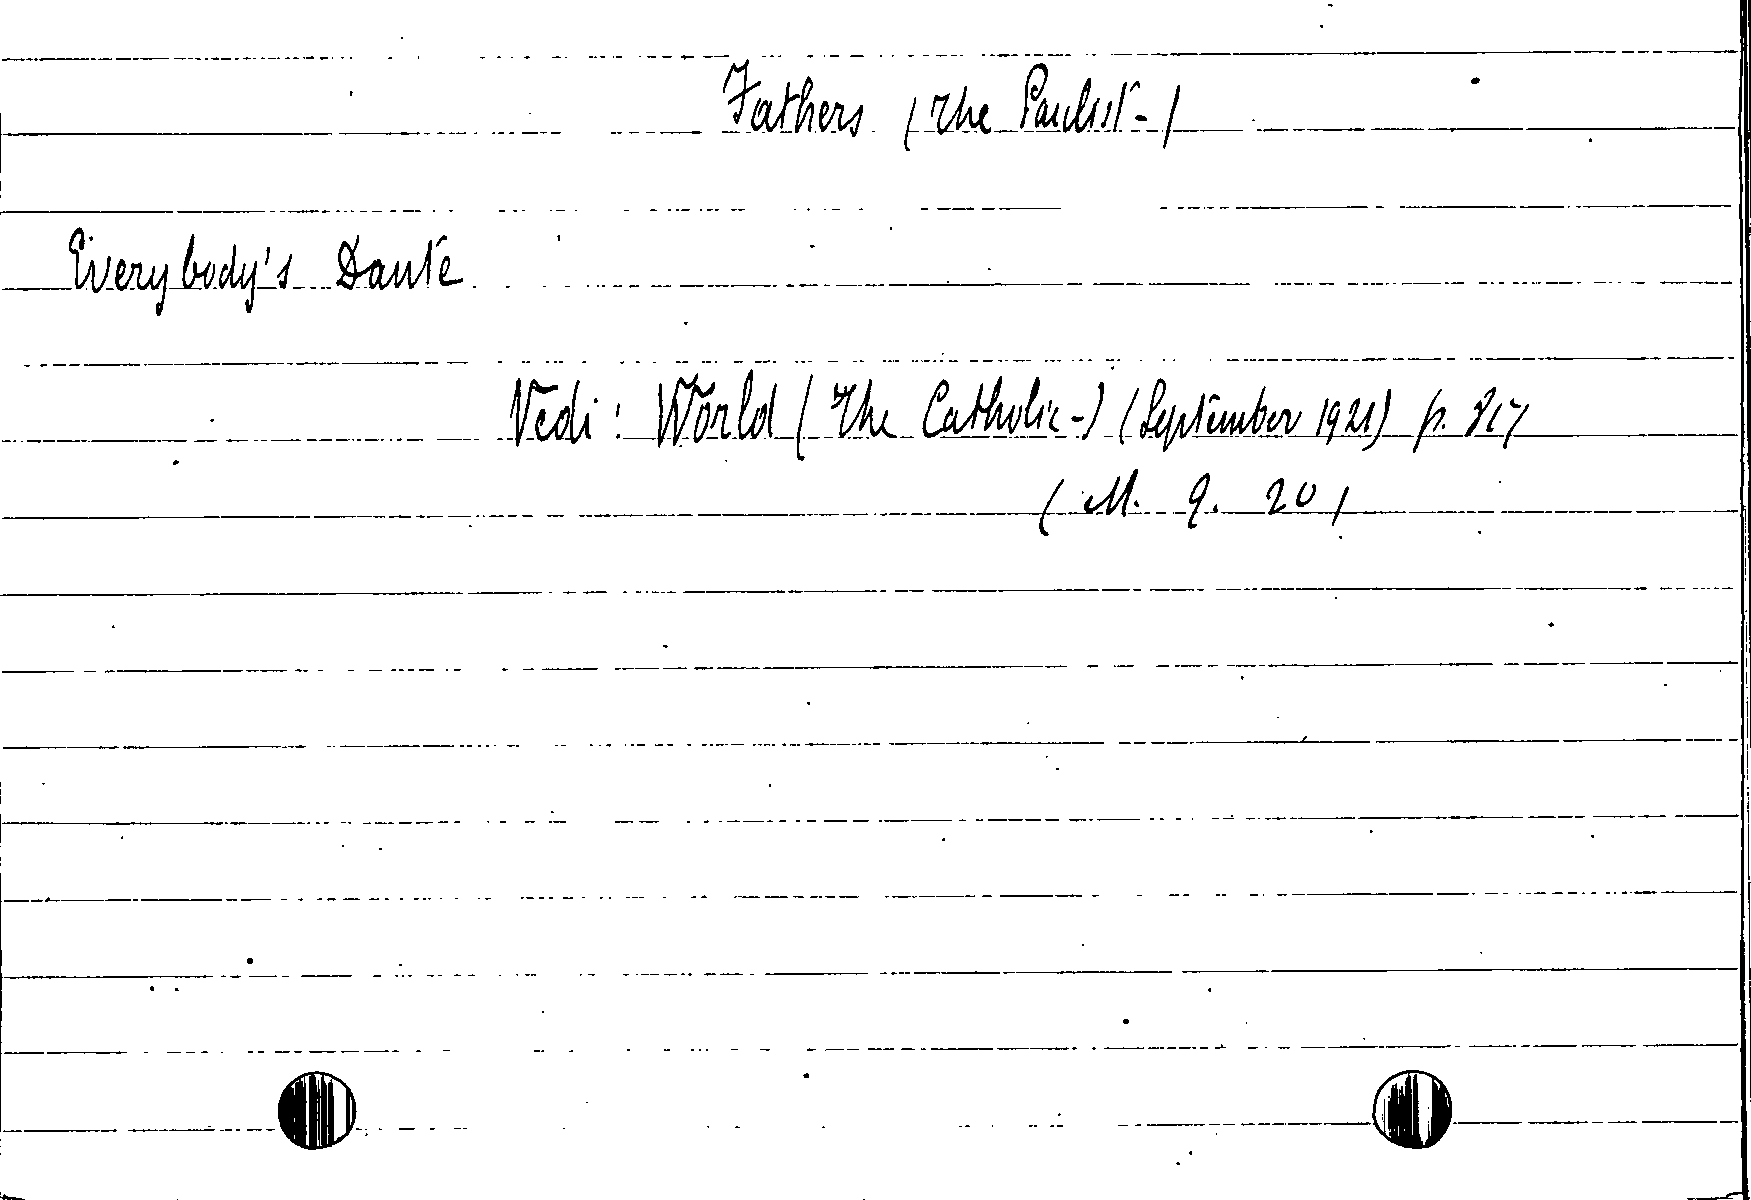 Fathers (The Paulist-)
Everybody's Dante
Vedi: World (The Catholic-) (September 1921) p. 817
(M. 9. 20)